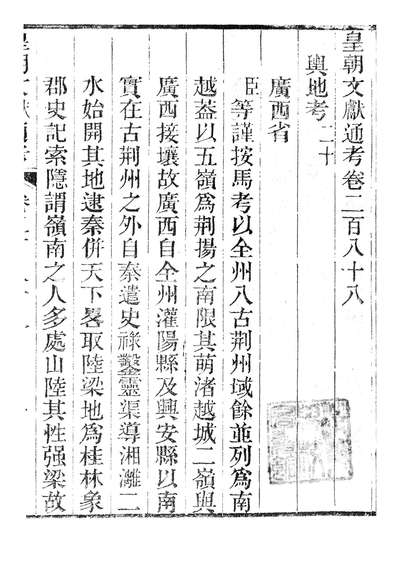 皇朝文獻通考卷二百八十八
輿地考二十
廣西省
臣等謹按馬考以全州入古荆州域餘並列爲南
越葢以五嶺爲荆揚之南限其萌渚越城二嶺與
廣西接壤故廣西自全州灌陽縣及興安縣以南
實在古荆州之外自秦遣史祿鑿靈渠導湘灕二
水始開其地逮秦併天下畧取陸梁地爲桂林象
郡史記索隱謂嶺南之人多處山陸其性强梁故